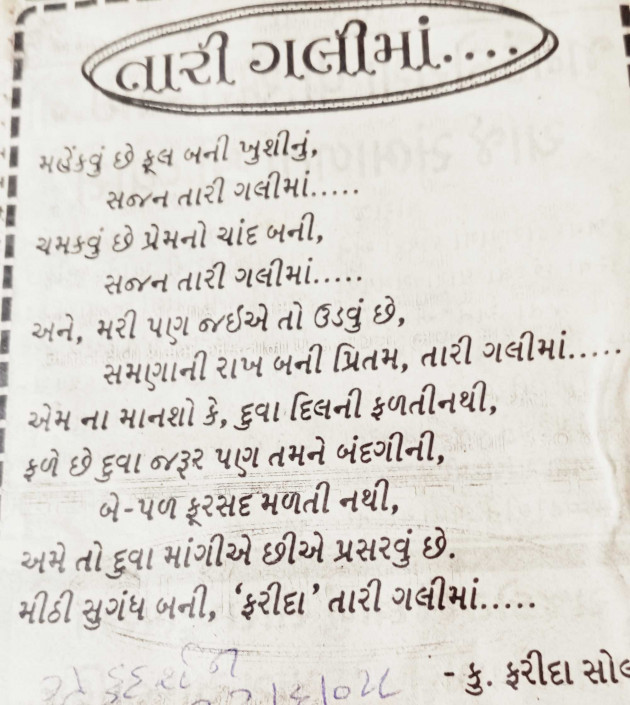 તારી ગલીમાં....
મહેંકવું છે ફૂલ બની ખુશીનું,
સજન તારી ગલીમાં.....
ચમકવું છે પ્રેમનો ચાંદ બની,
સજન તારી ગલીમાં.....
અને, મરી પણ જઈએ તો ઉડવું છે,
સમણાની રાખ બની પ્રિતમ, તારી ગલીમાં.....
એમ ના માનશો કે, દુવા દિલની ફળતીનથી,
ફળે છે દુવા જરૂર પણ તમને બંદગીની,
બે-પળ ફૂરસદ મળતી નથી,
અમે તો દુવા માંગીએ છીએ પ્રસરવું છે.
મીઠી સુગંધ બની, ‘ફરીદા’ તારી ગલીમાં.....
- કુ. ફરીદા